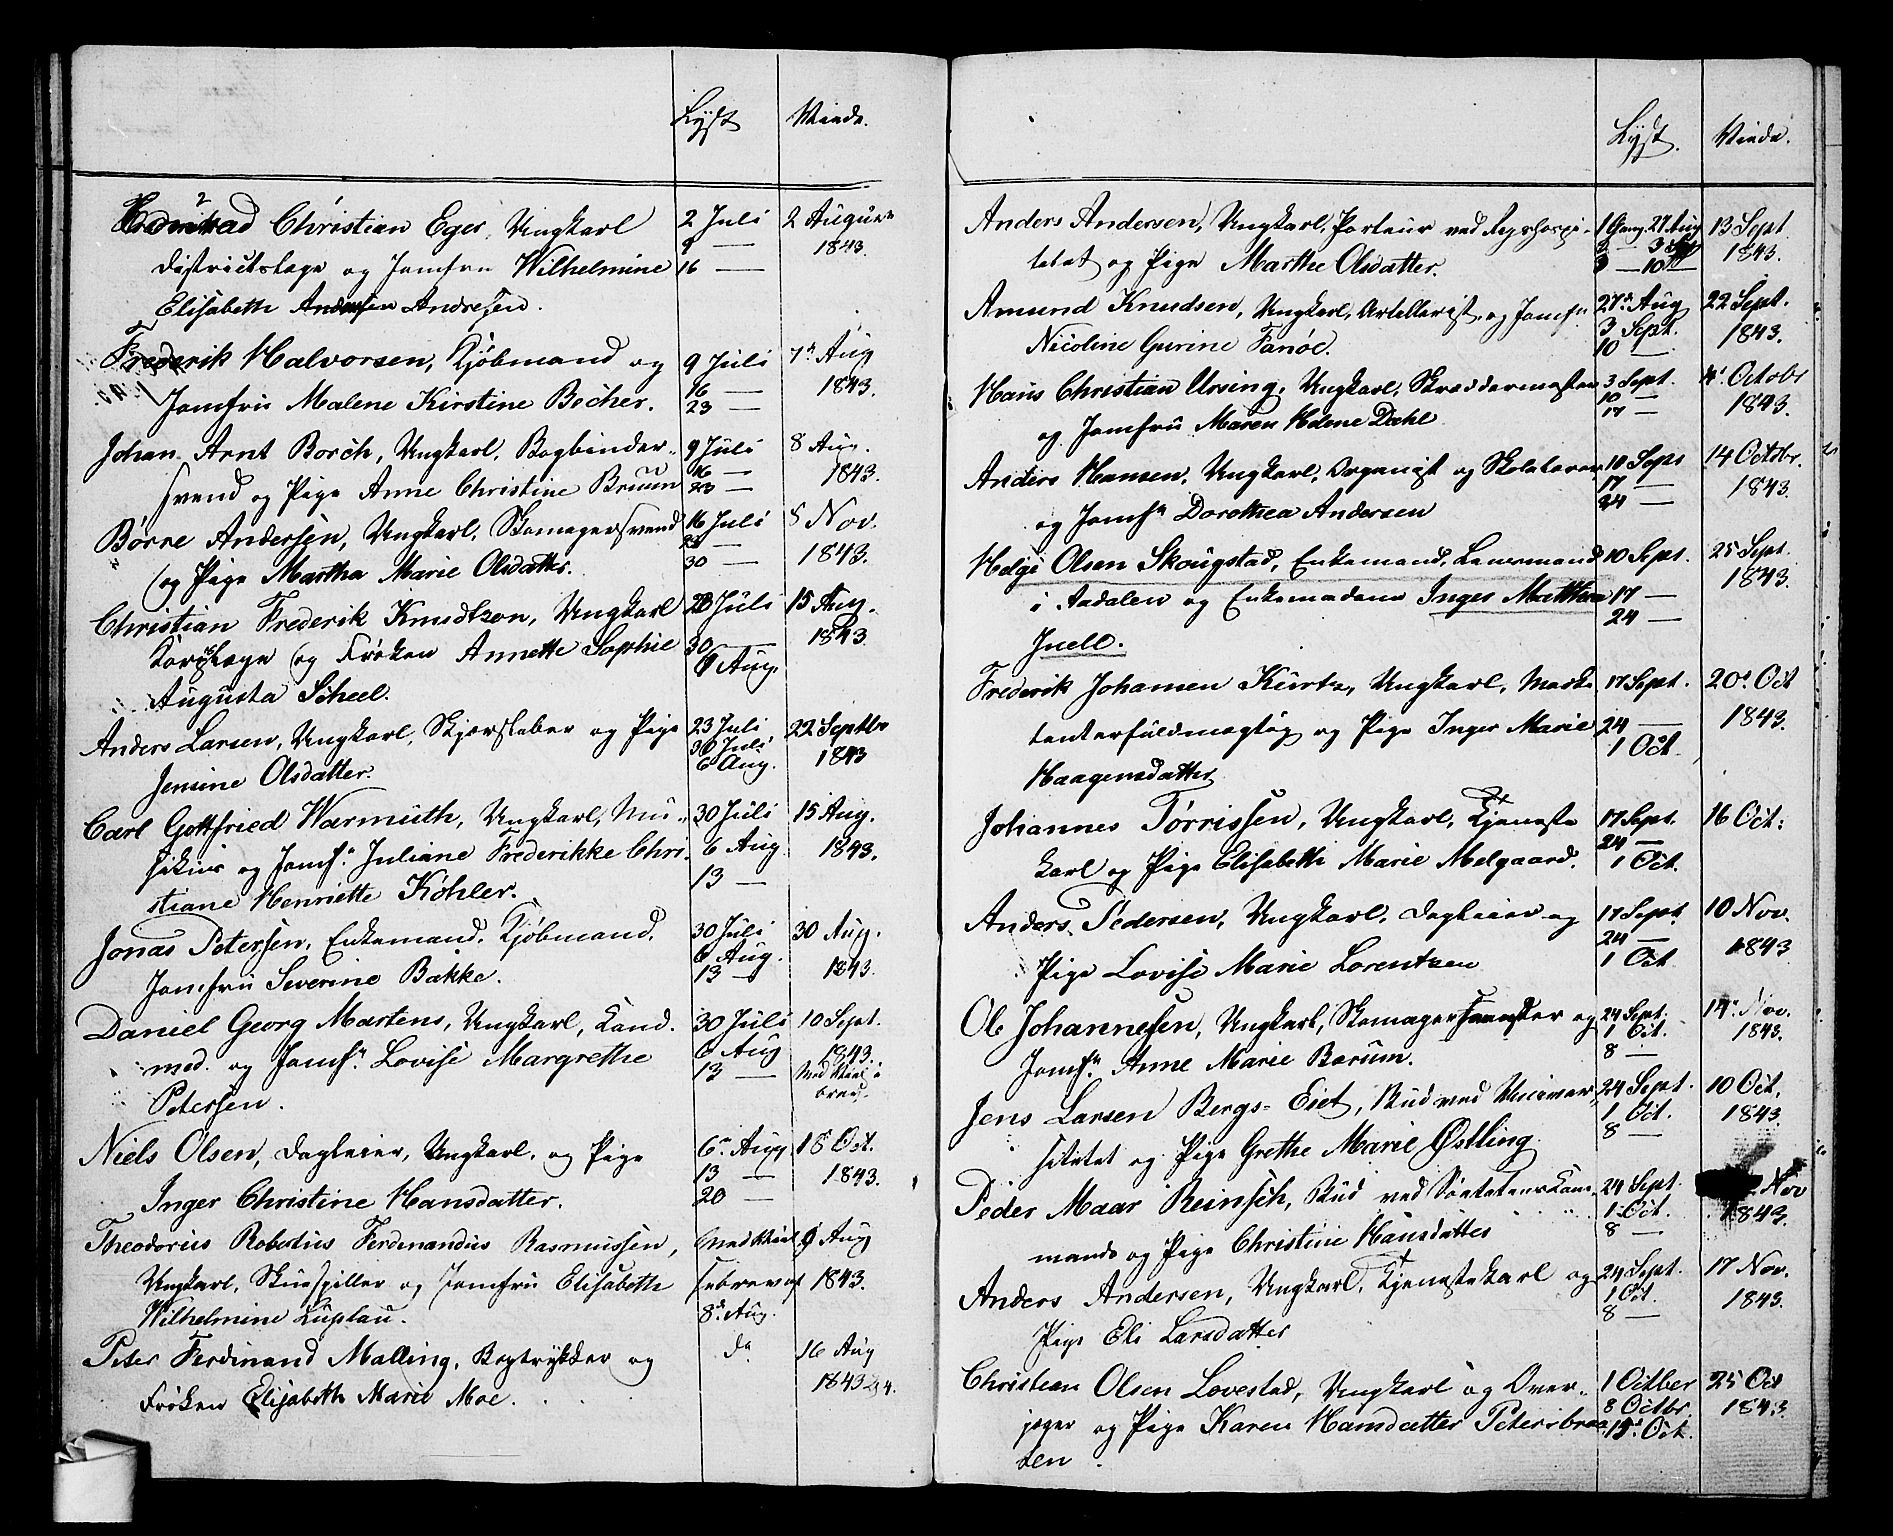 Lyst Viede.
Christian Eger, Ungkarl 2 Juli 2 August
Districtslæge og Jomfru Wilhelmine 9 — 1843.
Elisabeth Andresen. 16 —
Frederik Halvorsen, Kjøbmand og 9 Juli 7de Aug
Jomfru Malene Kirstine Becher. 16 — 1843.
23 —
Johan Arnt Borch, Ungkarl, Bogbinder- 9 Juli 8 Aug.
svend og Pige Anne Christine Bruun 16 — 1843.
23 —
Børre Andersen, Ungkarl, Skomagersvend 16 Juli 8 Nov.
og Pige Martha Marie Olsdatter. 23 — 1843.
30 —
Christian Frederik Knudtzon, Ungkarl 23 Juli 15 Aug.
Korpslæge og Frøken Annette Sophie 30 — 1843
Augusta Scheel. 6 Aug.
Anders Larsen, Ungkarl, Skjærsleber og Pige 23 Juli 22 Septbr
Jensine Olsdatter. 30 Juli 1843
6 Aug.
Carl Gottfried Warmuth, Ungkarl, Mu- 30 Juli 15 Aug.
sikus og Jomfr. Juliane Frederikke Chri- 6 Aug 1843.
stiane Henriette Köhler. 13 —
Jonas Petersen, Enkemand, Kjøbmand, 30 Juli 30 Aug.
Jomfru Severine Bakke. 6 Aug. 1843.
13 —
Daniel Georg Martens, Ungkarl, Cand. 30 Juli 10 Sept.
med. og Jomfr. Lovise Margrethe 6 Aug 1843.
Petersen. 13 —
Niels Olsen, Dagleier, Ungkarl, og Pige 6 Aug 18 Oct.
Inger Christine Hansdatter. 13 — 1843.
20 —
Theodorius Robertus Ferdinandus Rasmussen, 9 Aug
Ungkarl, Skuespiller og Jomfru Elisabeth 1843.
Wilhelmine Luplau. 8de Aug.
Peter Ferdinand Malling, Bogtrykker og do 16 Aug
Frøken Elisabeth Marie Moe. 1843
Lyst. Viede.
Anders Andersen, Ungkarl, Porteur ved Rigshospi- 1 Gang 27 Aug 13 Sept
talet og Pige Marthe Olsdatter. 2 — 3 Sept 1843.
3 — 10 —
Amund Knudsen, Ungkarl, Artellerist og Jomfr 27 Aug 22 Sept.
Nicoline Gurine Fanøe. 3 Sept. 1843.
10 —
Hans Christian Ursing, Ungkarl, Skreddermester 3 Sept. 4 Octobr
og Jomfru Maren Helene Dahl 10 — 1843.
17 —
Anders Hansen, Ungkarl, Organist og Skolelærer 10 Sept 14 Octbr.
og Jomfr Dorothea Andersen 17 — 1843.
24 —
Helge Olsen Skougstad, Enkemand, Lensmand 10 Sept. 25 Sept.
i Aadalen og Enkemadame Inger Matthea 17 — 1843.
Juell. 24 —
Frederik Johansen Kurtz, Ungkarl, Marke 17 Sept. 20 Oct
tenterfuldmægtig og Pige Inger Marie 24 — 1843.
Haagensdatter 1 Oct.
Johannes Tørrissen, Ungkarl, Tjeneste 17 Sept. 16 Oct.
karl og Pige Elisabeth Marie Melgaard. 24 —
1 Oct.
Anders Pedersen, Ungkarl, Dagleier og 17 Sept 10 Nov.
Pige Lovise Marie Lorentzen 24 — 1843
1 Oct
Ole Johannesen, Ungkarl, Skomagermester og 24 Sept. 14 Nov.
Jomfr. Anne Marie Barum. 1 Oct. 1843.
8 —
Jens Larsen Bergs-Eiet, Bud ved Univer- 24 Sept. 10 Oct.
sitetet og Pige Grethe Marie Østling 1 Oct. 1843.
8 —
Peder Maar Reinsch, Bud ved Søetatens Kom- 24 Sept. Nov
mando og Pige Christine Hansdatter 1 Oct. 1843.
8 —
Anders Andersen, Ungkarl, Tjenestekarl og 24 Sept. 17 Nov.
Pige Eli Larsdatter 1 Oct. 1843.
8 —
Christian Olsen Lovestad, Ungkarl og Over- 1 Octber 25 Oct
jæger og Pige Karen Hansdatter Petersbraa- 8 Octbr 1843.
ten. 15 Oct.